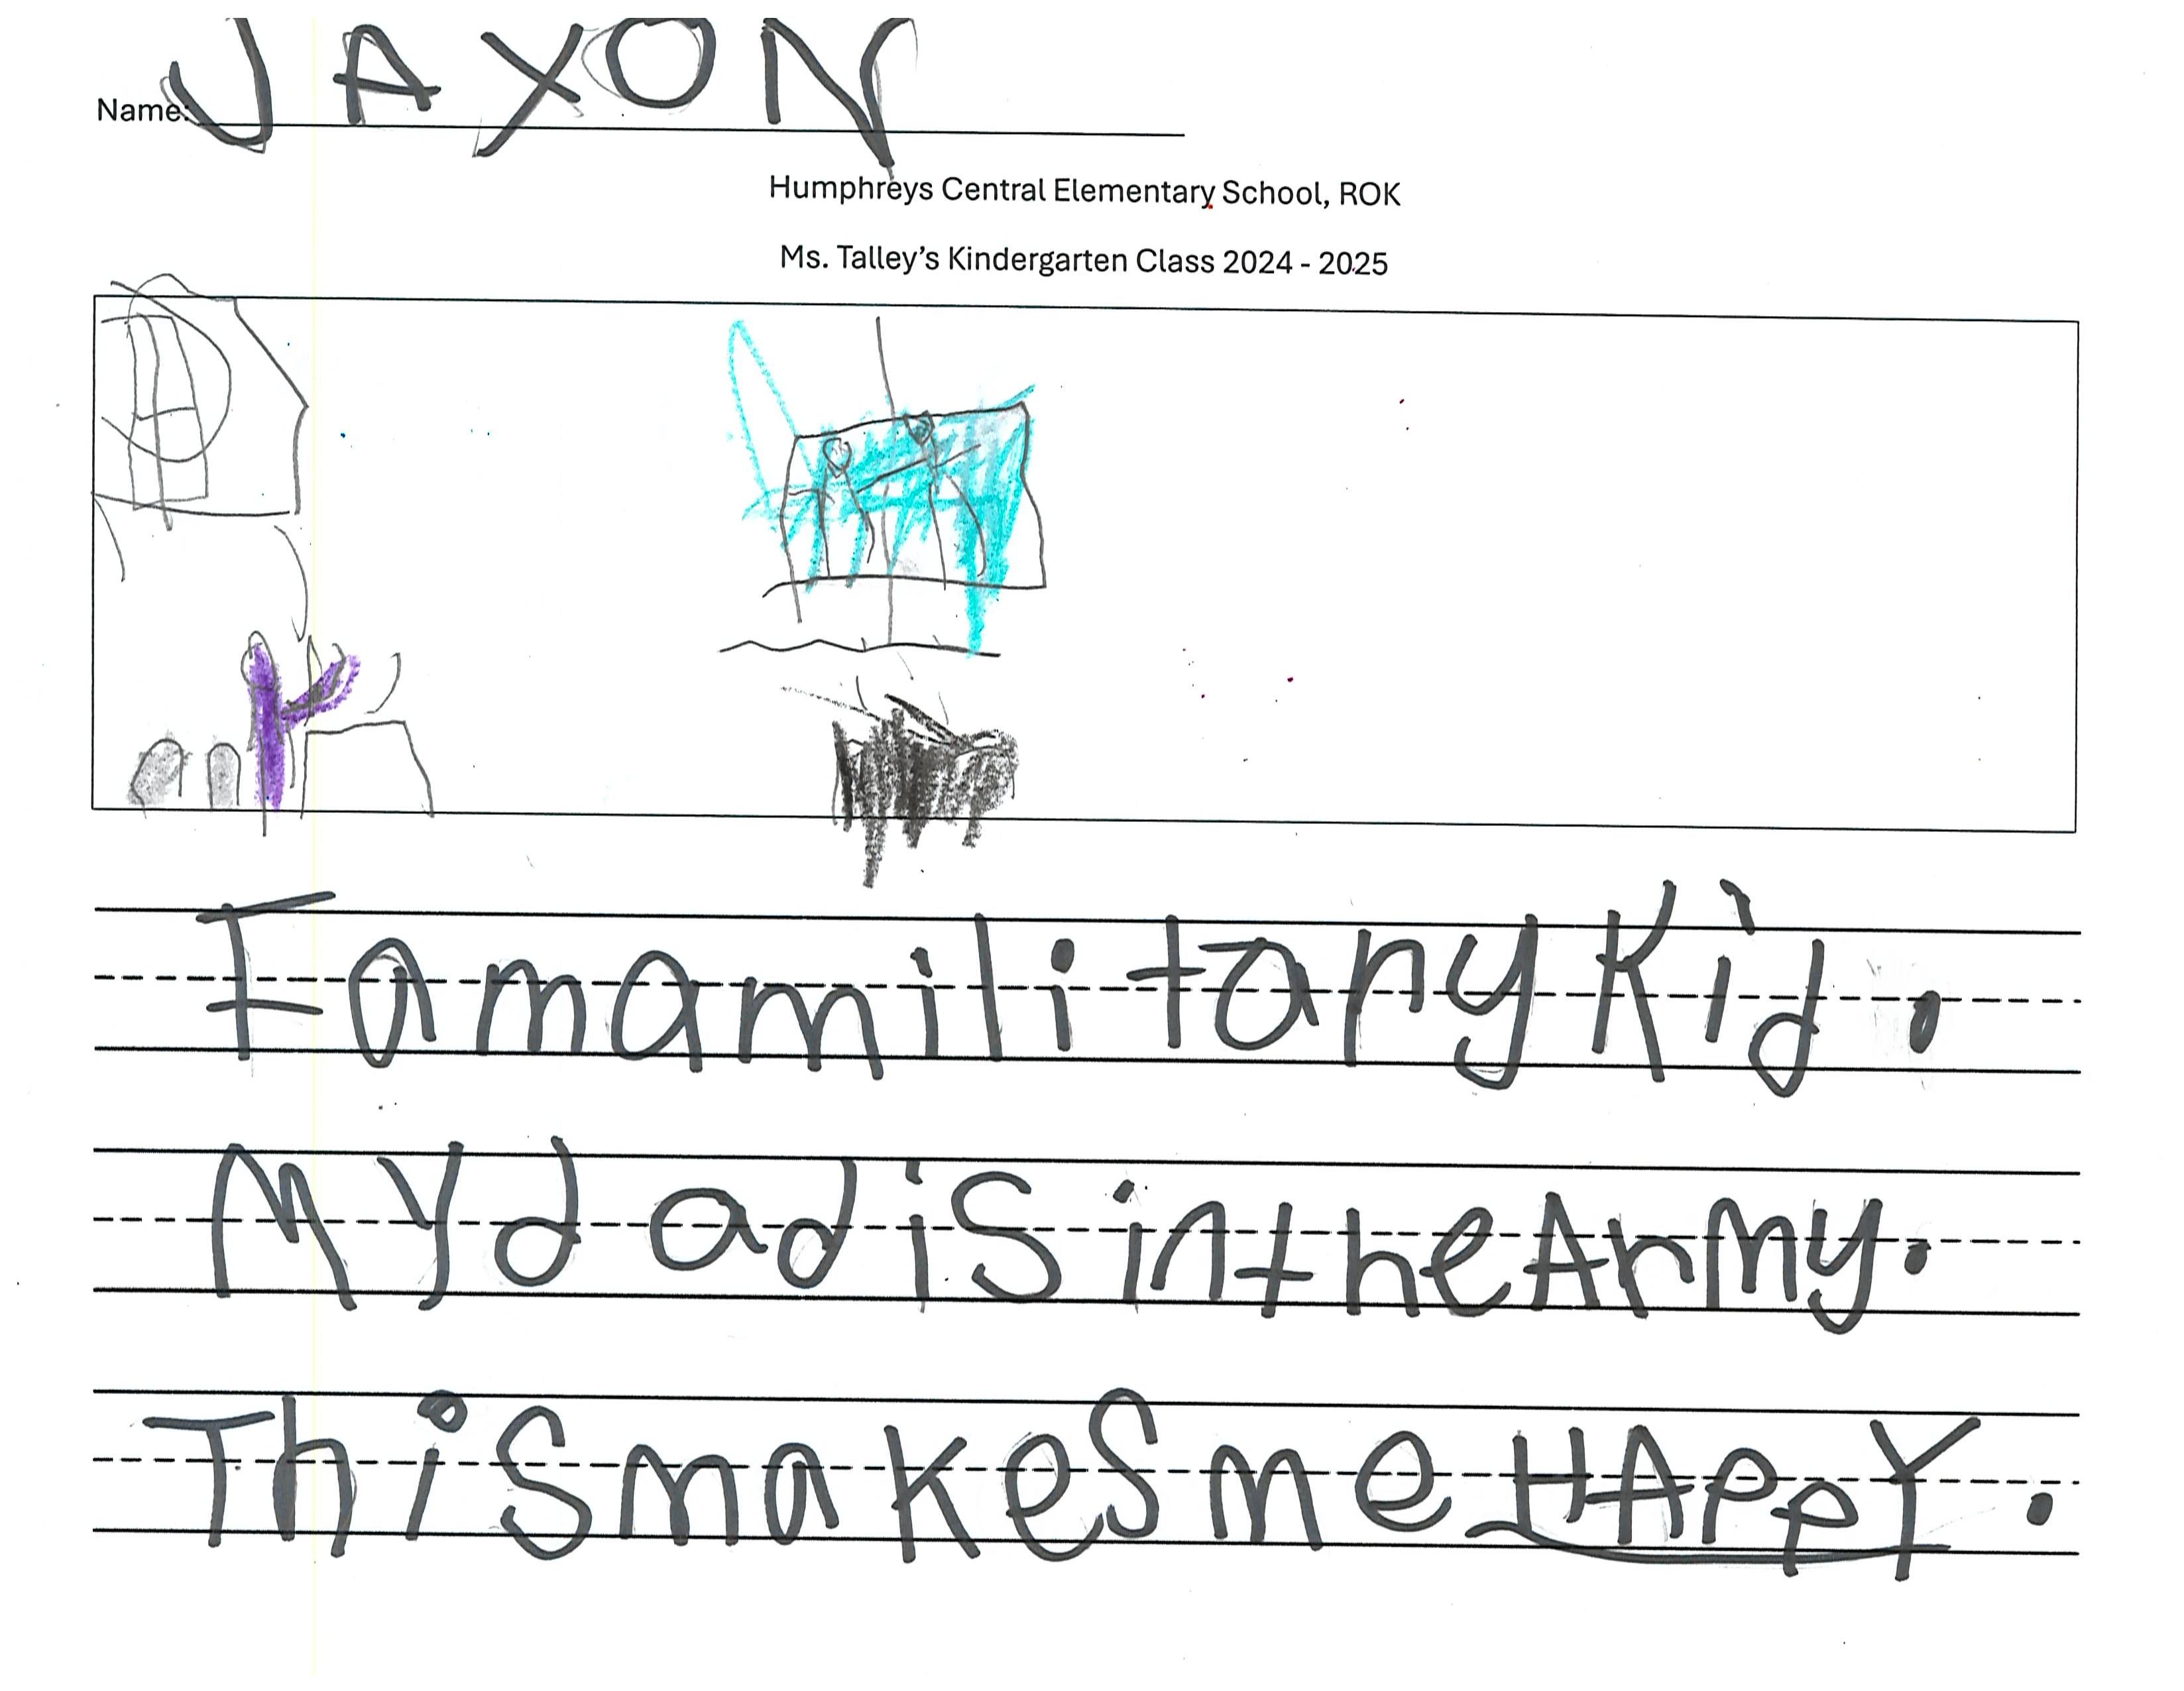 Name: JAXON
Humphreys Central Elementary School, ROK
Ms. Talley's Kindergarten Class 2024 - 2025
I am a military Kid.
My dad is in the Army.
This makes me HAppY.